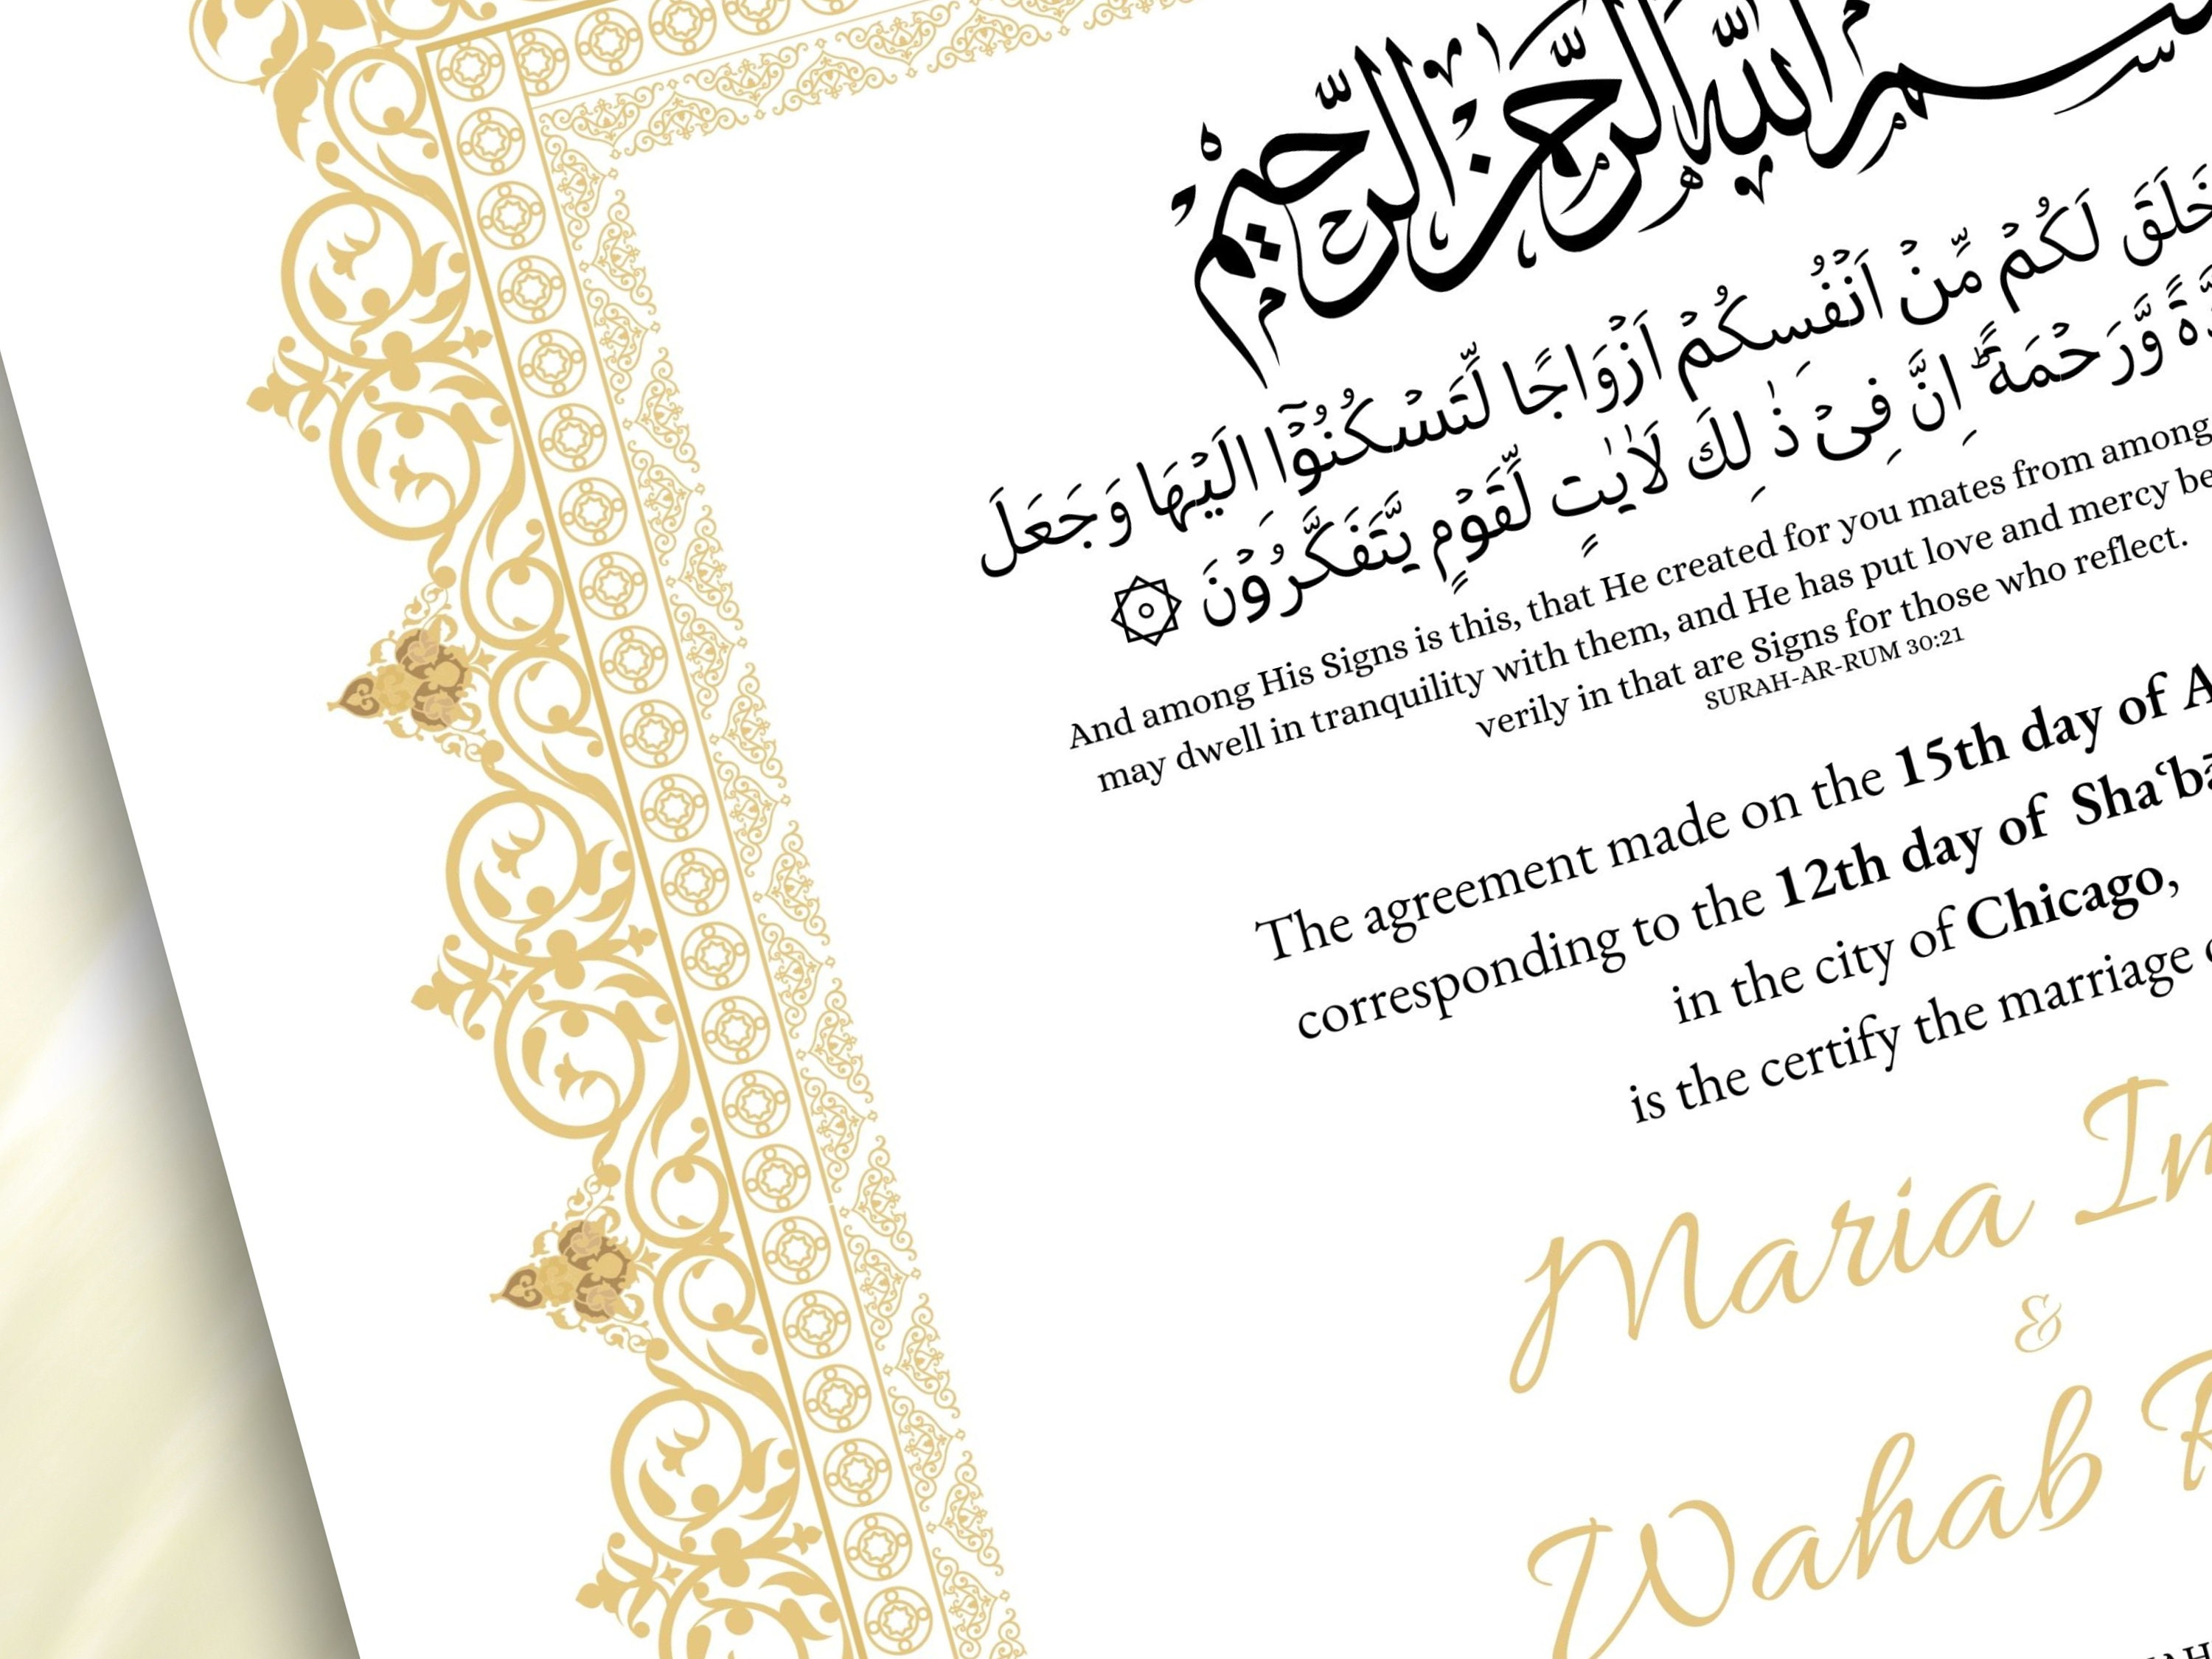 بسم الله الرحمن الرحيم
خَلَقَ لَكُمْ مِّنْ اَنْفُسِكُمْ اَزْوَاجًا لِّتَسْكُنُوْٓا اِلَيْهَا وَجَعَلَ
وَّرَحْمَةً ؕ اِنَّ فِىْ ذٰ لِكَ لَاٰيٰتٍ لِّقَوْمٍ يَّتَفَكَّرُوْنَ ۞
And among His Signs is this, that He created for you mates from among
may dwell in tranquility with them, and He has put love and mercy be
verily in that are Signs for those who reflect.
SURAH-AR-RUM 30:21
The agreement made on the 15th day of A
corresponding to the 12th day of Sha‘bā
in the city of Chicago,
is the certify the marriage
Maria
&
Wahab